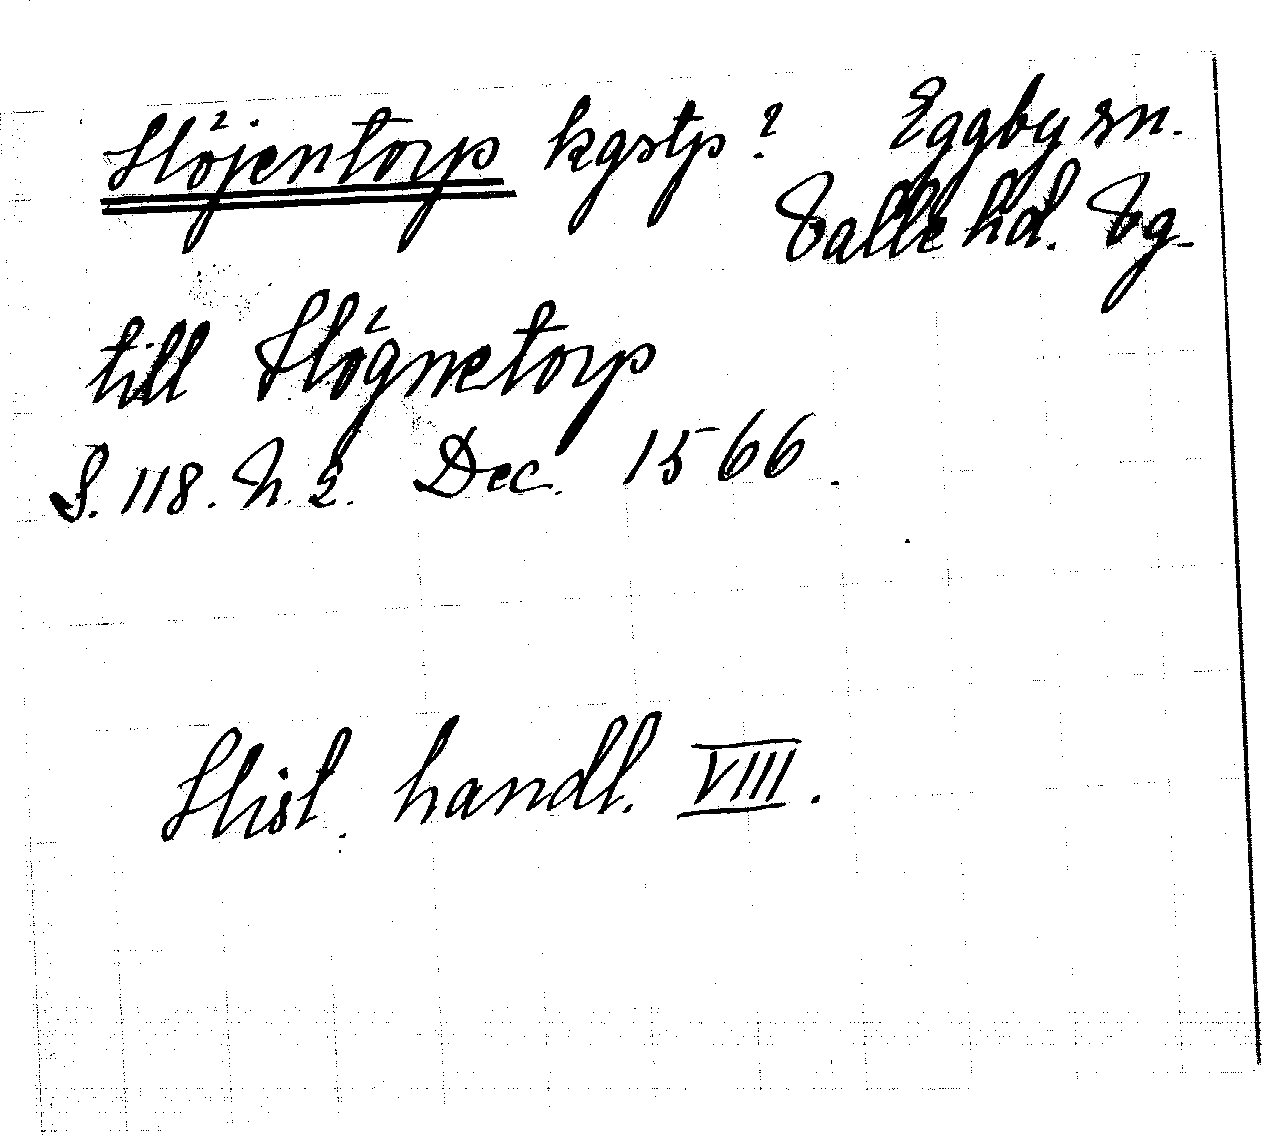 Höjentorp kgstp? Eggby sn.
Valle hd. Vg.
till Högnetorp
S. 118. N. 2. Dec. 1566.
Hist. handl. VIII.